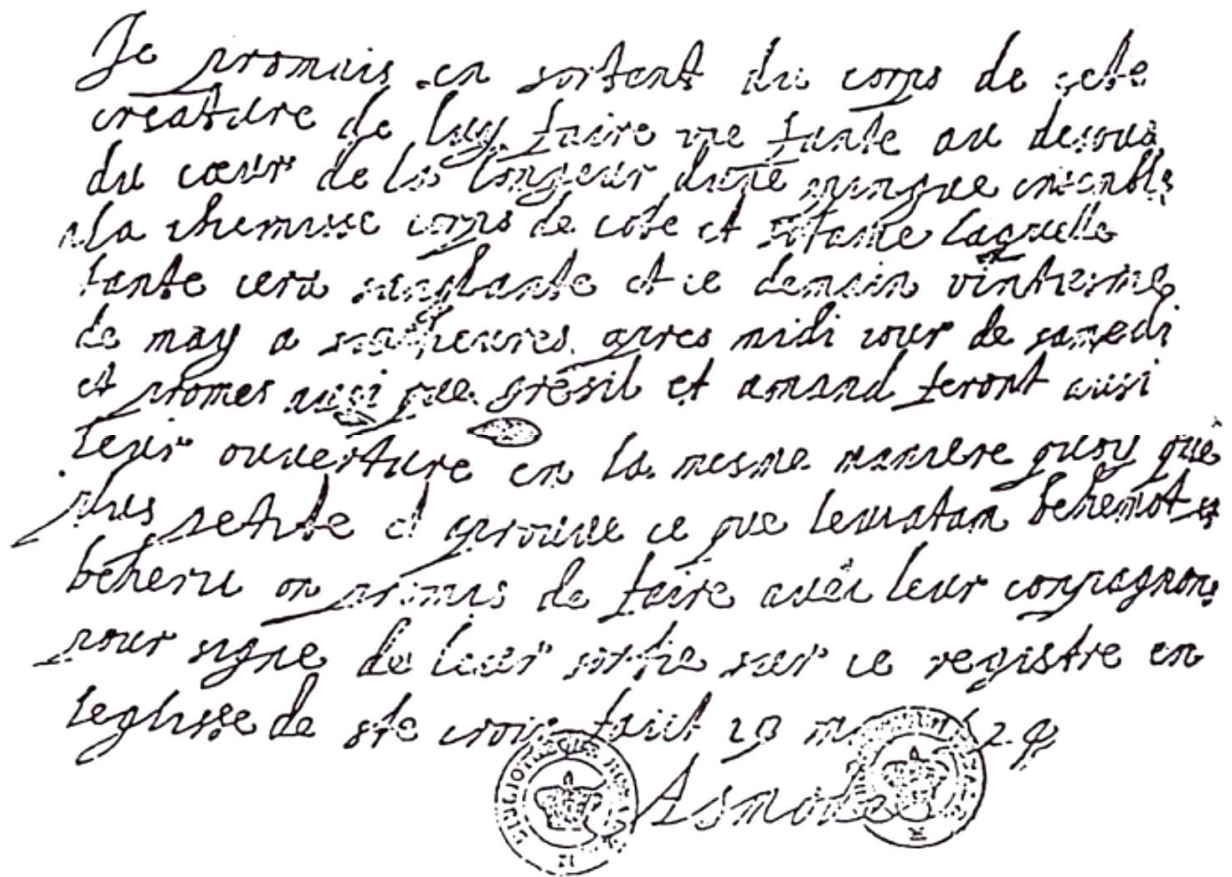 Je promais en sortent du corps de cete
creature de luy faire vne fante au desous
du cœur de la longeur dune pingue ensenble
a la chemisse corps de cote et sotane laquelle
fante cera sanglante et ce demain vintiesme
de may a sinq heures apres midi iour de samedi
et promes ausi que gresil et amand feront ausi
leur ouuerture en la mesme maniere quoy que
plus petite et aprouue ce que leuiatam behemot et
beherie on promis de faire auec leur conpagnons
pour signe de leur sortie sur ce registre en
leglisse de ste croix faict 19 may
Asmodee